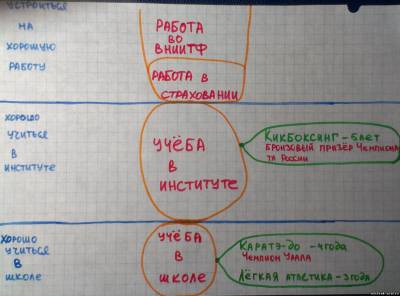 УСТРОИТЬСЯ
НА
ХОРОШУЮ
РАБОТУ
РАБОТА
ВО
ВНИИТФ
РАБОТА В
СТРАХОВАНИИ
ХОРОШО
УЧИТЬСЯ
В
ИНСТИТУТЕ
УЧЁБА
В
ИНСТИТУТЕ
КИКБОКСИНГ – 5 ЛЕТ
БРОНЗОВЫЙ ПРИЗЁР ЧЕМПИОНА
ТА РОССИИ
ХОРОШО
УЧИТЬСЯ
В
ШКОЛЕ
УЧЁБА
В
ШКОЛЕ
КАРАТЭ-ДО – 4 ГОДА
ЧЕМПИОН УРАЛА
ЛЁГКАЯ АТЛЕТИКА – 3 ГОДА